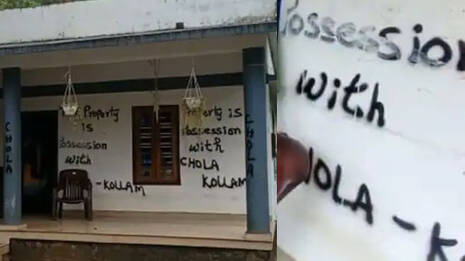 CHOLA
Property
is
Possession
with
-KOLLAM
Property is
Possession
with
CHOLA
KOLLAM
CHOLA
Possession
with
OLA-K